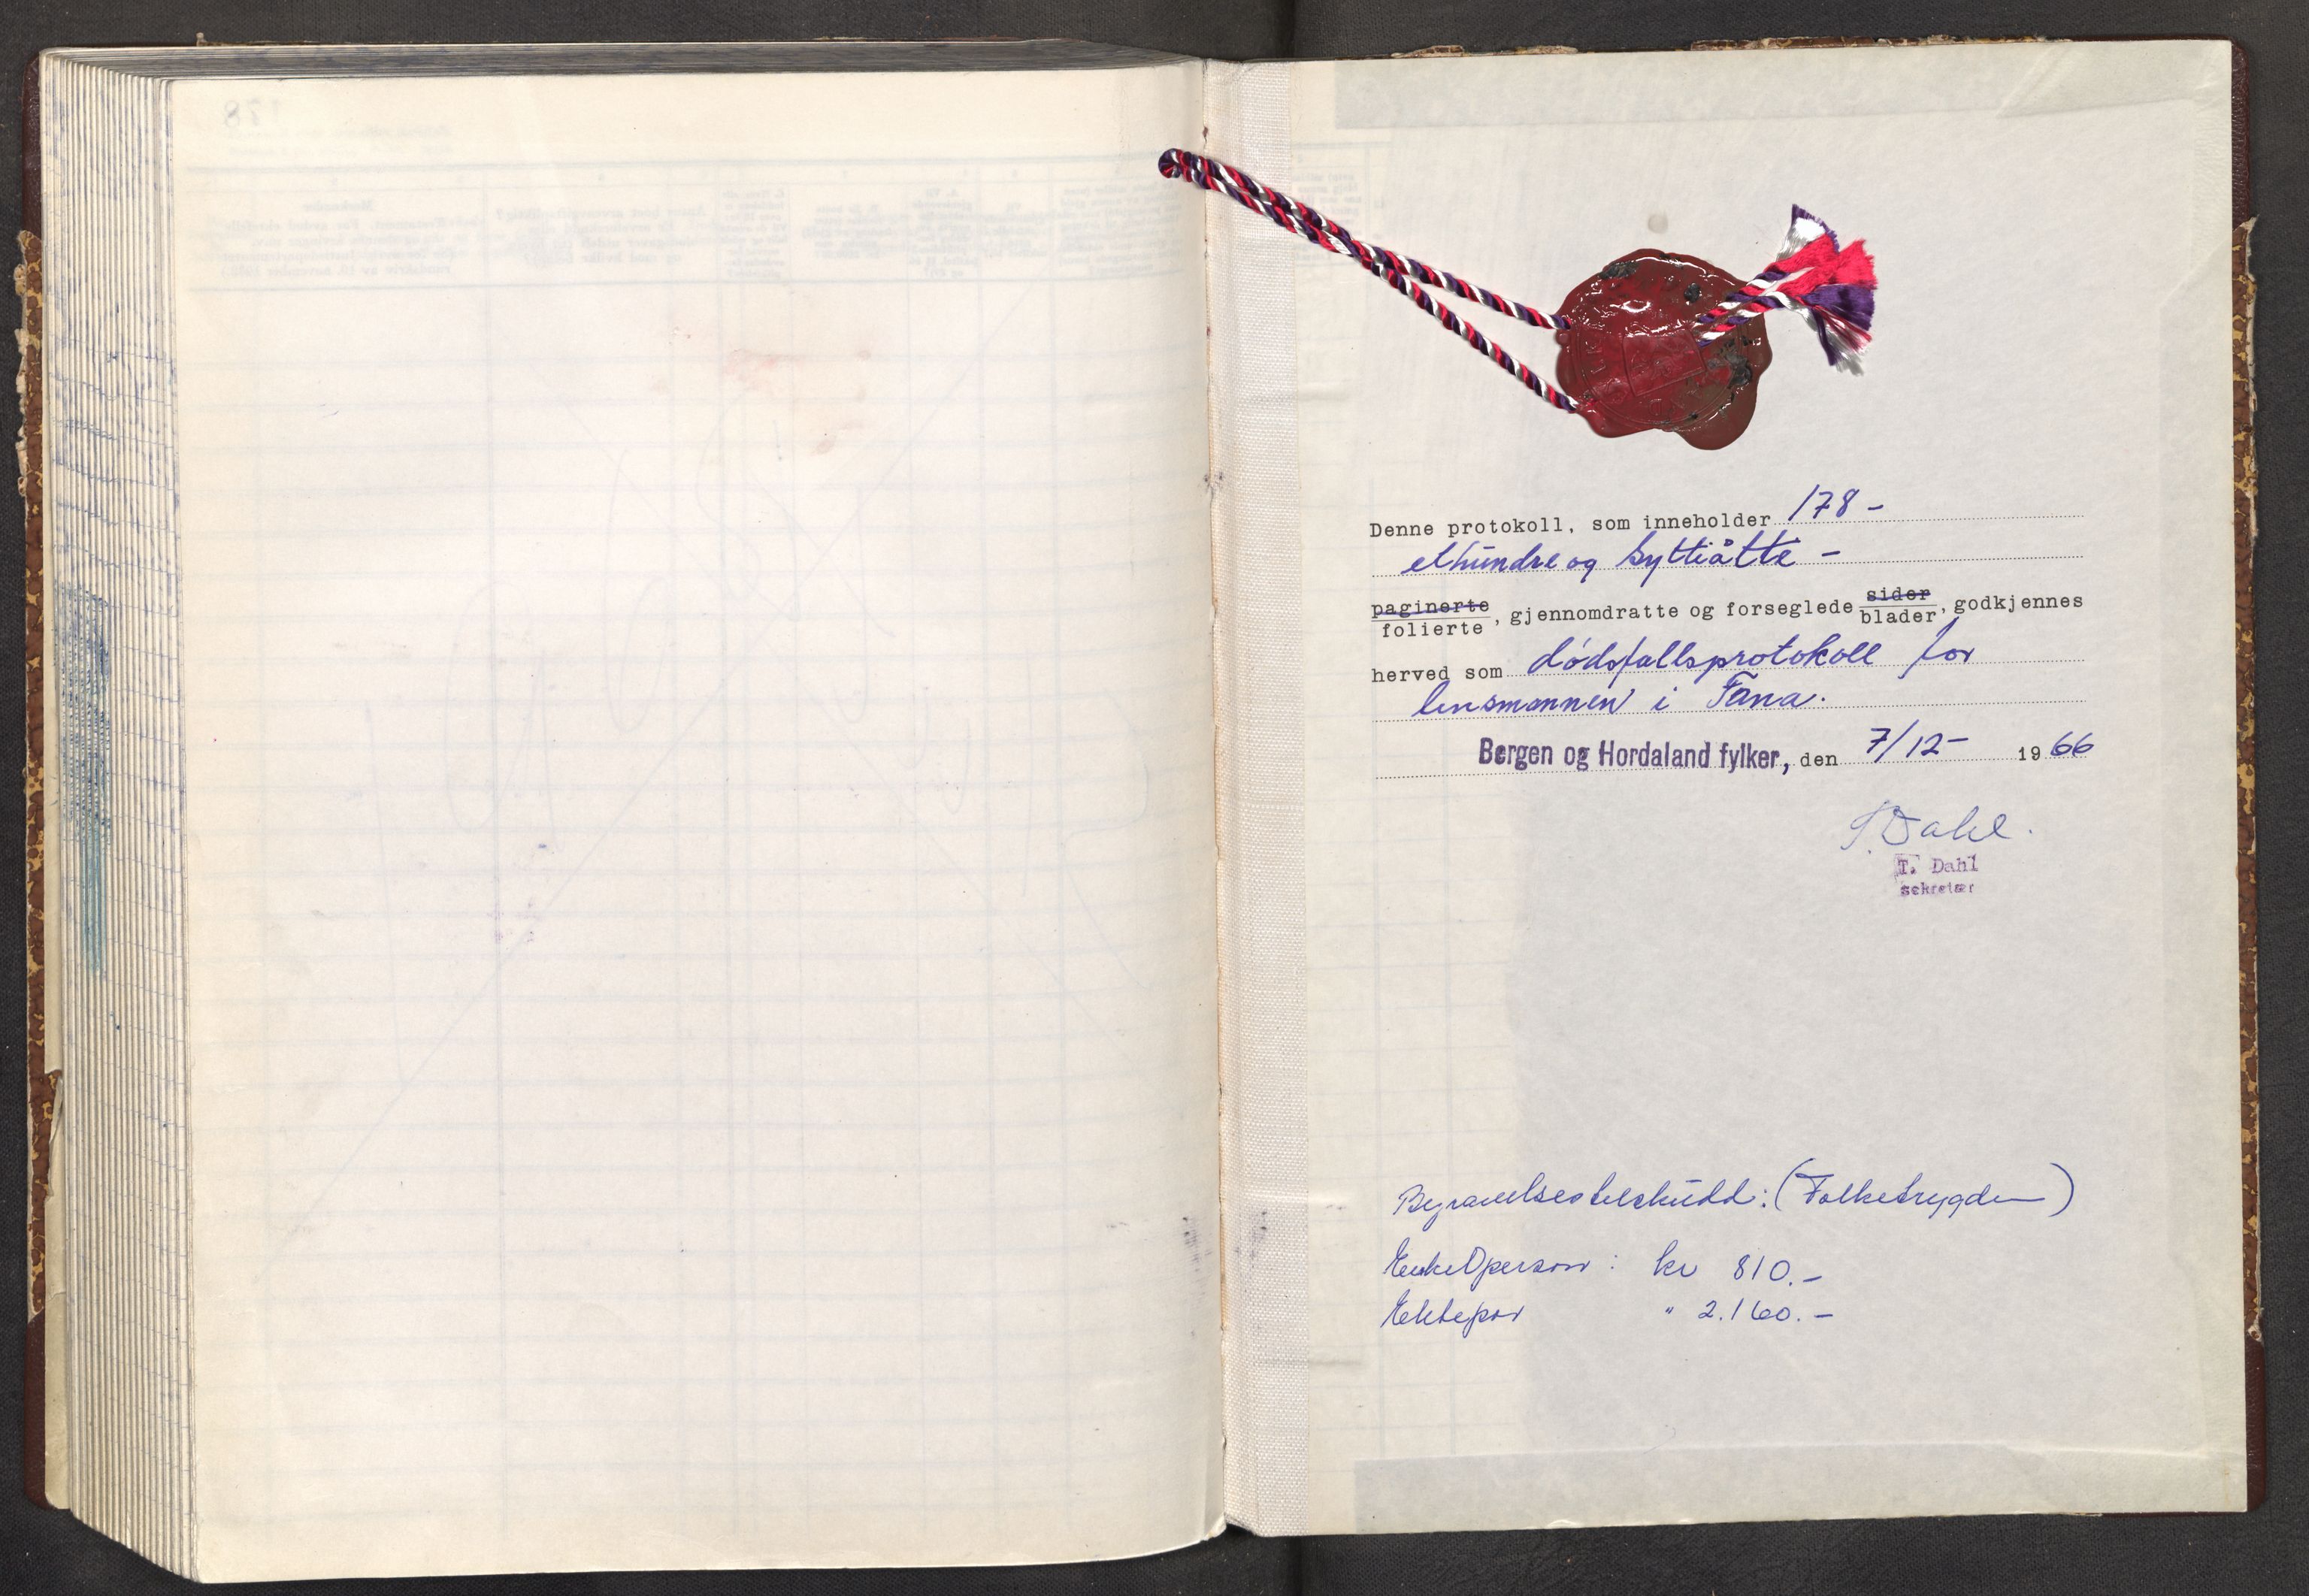 178
Denne protokoll, som inneholder 178 -
ethundre og syttiåtte -
paginerte sider
folierte, gjennomdratte og forseglede blader, godkjennes
herved som dødsfallsprotokoll for
lensmannen i Fana.
Bergen og Hordaland fylker, den 7/12- 1966
T. Dahl.
T. Dahl
sekretær
Begravelsestilskudd: (Folketrygden)
Enkeltperson: kr 810.-
Ektepar " 2.160.-